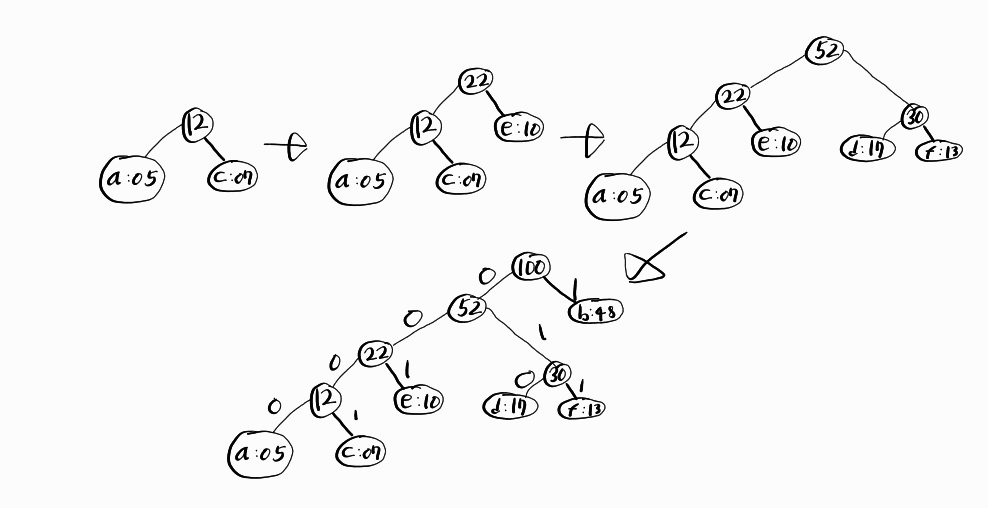 12
a:05 c:07
22
12 e:10
a:05 c:07
52
22 30
12 e:10 d:17 f:13
a:05 c:07
0 100 1
0 52 b:48
1
0 22 1
0 30 1
0 12 e:10 d:17 f:13
1
a:05 c:07